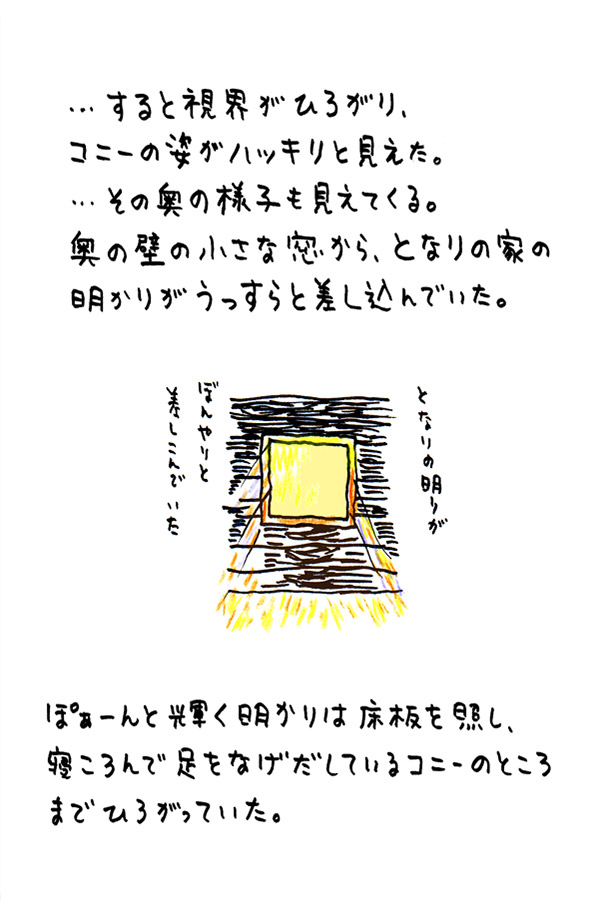 …すると視界がひろがり、
コニーの姿がハッキリと見えた。
…その奥の様子も見えてくる。
奥の壁の小さな窓から、となりの家の
明かりがうっすらと差し込んでいた。
となりの明りが
ぼんやりと
差しこんでいた
ぽぁーんと輝く明かりは床板を照し、
寝ころんで足をなげだしているコニーのところ
までひろがっていた。